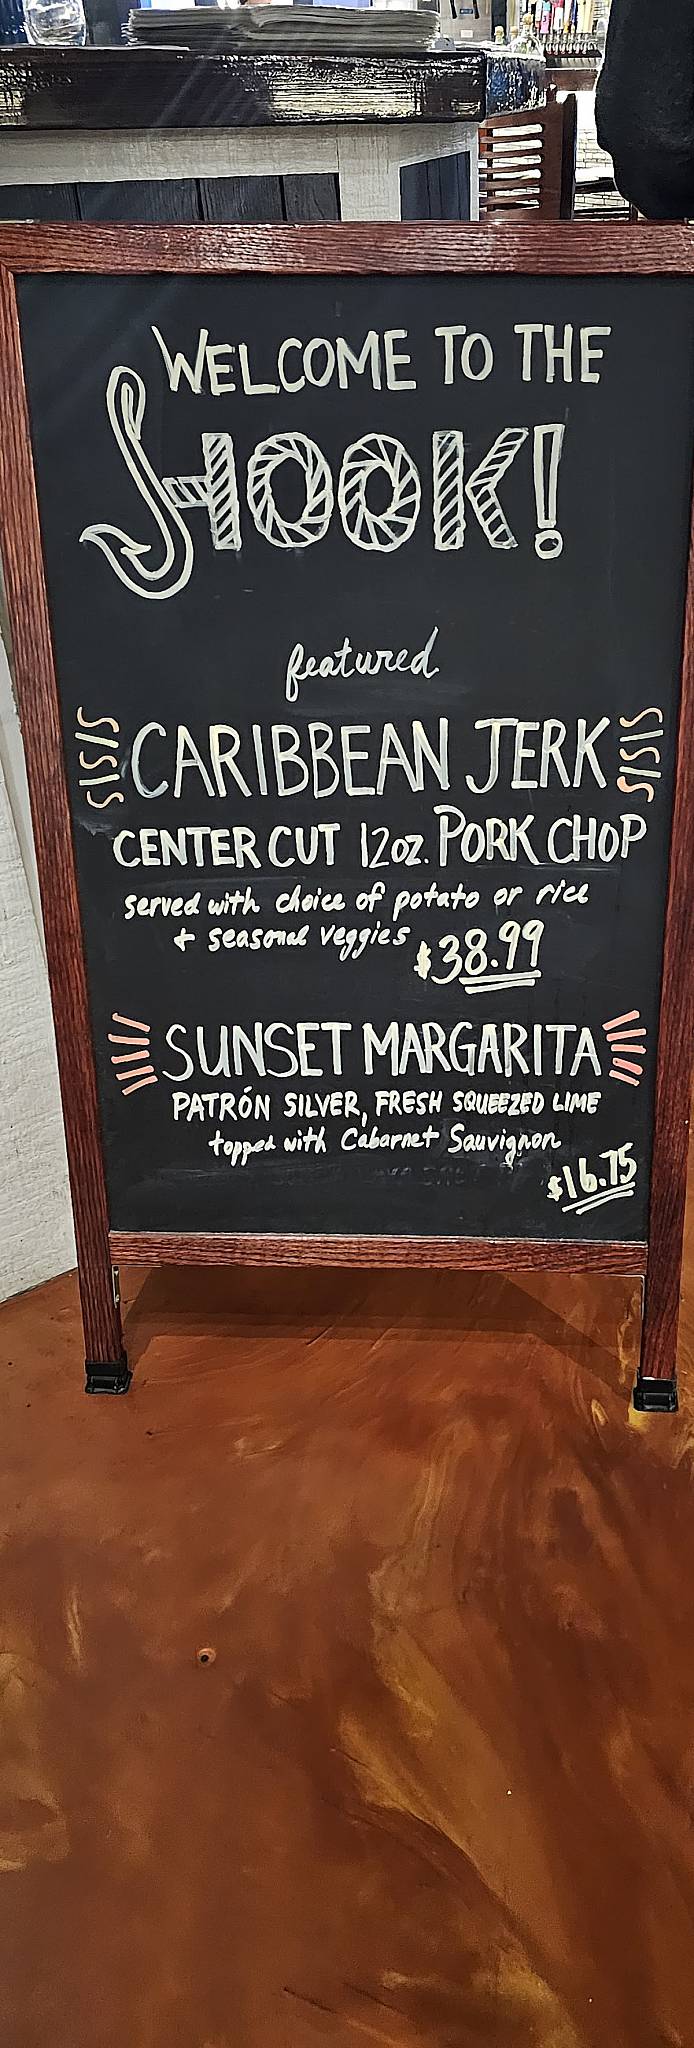 WELCOME TO THE
HOOK!
featured
CARIBBEAN JERK
CENTER CUT 12oz. PORK CHOP
served with choice of potato or rice
+ seasonal veggies $38.99
SUNSET MARGARITA
PATRÓN SILVER, FRESH SQUEEZED LIME
topped with Cabarnet Sauvignon
$16.75